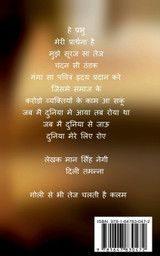 हे प्रभु
मेरी प्रार्थना है
मुझे सूरज सा तेज
चंदन सी ठंडक
गंगा सा पवित्र हृदय प्रदान करे
जिससे समाज के
करोडो व्यक्तियों के काम आ सकू
जब मैं दुनिया मे आया तब रोया था
जब मैं दुनिया से जाऊ
दुनिया मेरे लिए रोए
लेखक मान सिंह नेगी
दिली तमन्ना
गोली से भी तेज चलती है कलम
ISBN 978-1-64783-047-2